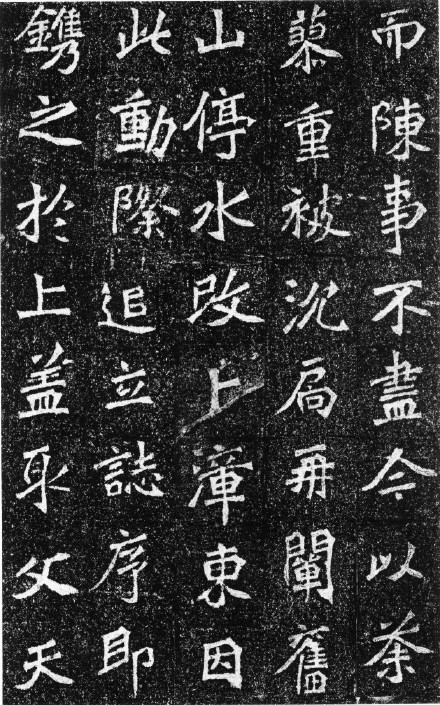 而陳事不盡今以荼
蓼重被沈扃再闡舊
山停水改上東因
此動際追立誌序即
鐫之於上蓋取父天